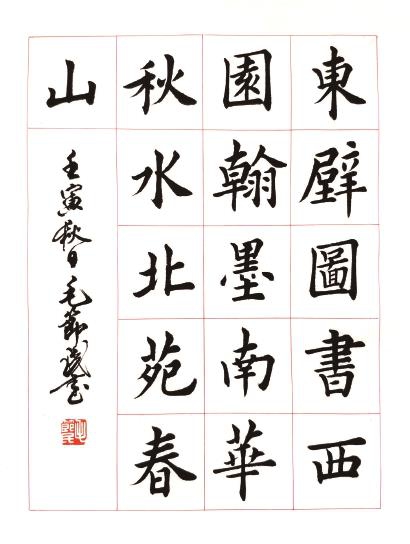 東壁圖書西
園翰墨南華
秋水北苑春
山
壬寅秋日毛節